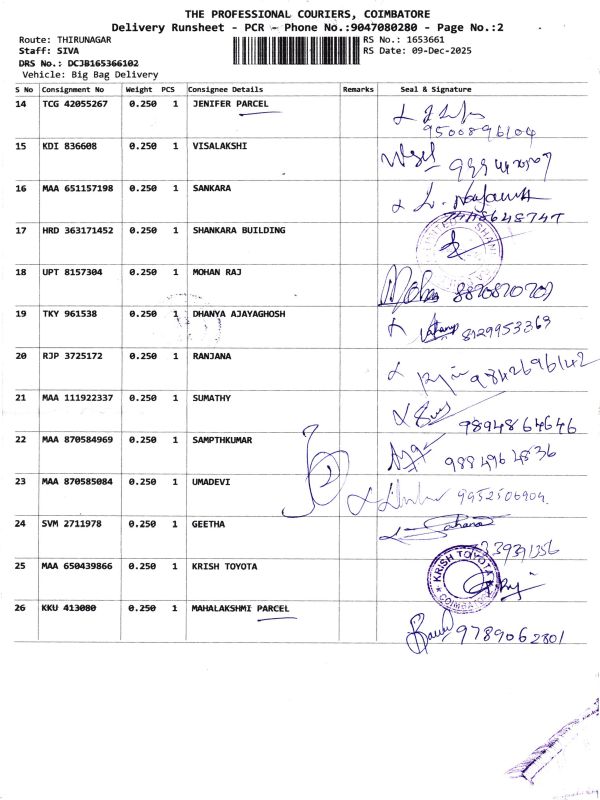 THE PROFESSIONAL COURIERS, COIMBATORE
Delivery Runsheet - PCR - Phone No.:9047080280 - Page No.:2
Route: THIRUNAGAR RS No.: 1653661
Staff: SIVA RS Date: 09-Dec-2025
DRS No.: DCJB165366102
Vehicle: Big Bag Delivery
S No Consignment No Weight PCS Consignee Details Remarks Seal & Signature
14 TCG 42055267 0.250 1 JENIFER PARCEL
9500896104
15 KDI 836608 0.250 1 VISALAKSHI
16 MAA 651157198 0.250 1 SANKARA
17 HRD 363171452 0.250 1 SHANKARA BUILDING
18 UPT 8157304 0.250 1 MOHAN RAJ
8870870707
19 TKY 961538 0.250 1 DHANYA AJAYAGHOSH
8129953369
20 RJP 3725172 0.250 1 RANJANA
9842696142
21 MAA 111922337 0.250 1 SUMATHY
9894864646
22 MAA 870584969 0.250 1 SAMPTHKUMAR
9884964836
23 MAA 870585084 0.250 1 UMADEVI
9952506904
24 SVM 2711978 0.250 1 GEETHA
Sahana
25 MAA 650439866 0.250 1 KRISH TOYOTA
KRISH TOYOTA
COIMBATORE
26 KKU 413080 0.250 1 MAHALAKSHMI PARCEL
9789062801